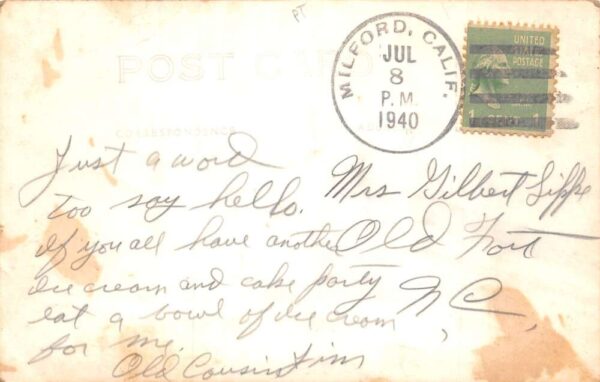 PT
POST CARD
CORRESPONDENCE
MILFORD, CALIF.
JUL
8
P.M.
1940
UNITED
STATES
POSTAGE
1 1
Just a word
too say hello.
If you all have another
ice cream and cake party
eat a bowl of ice cream
for me.
Old Cousin Jim
Mrs Gilbert Lippe
Old Fort
NC,